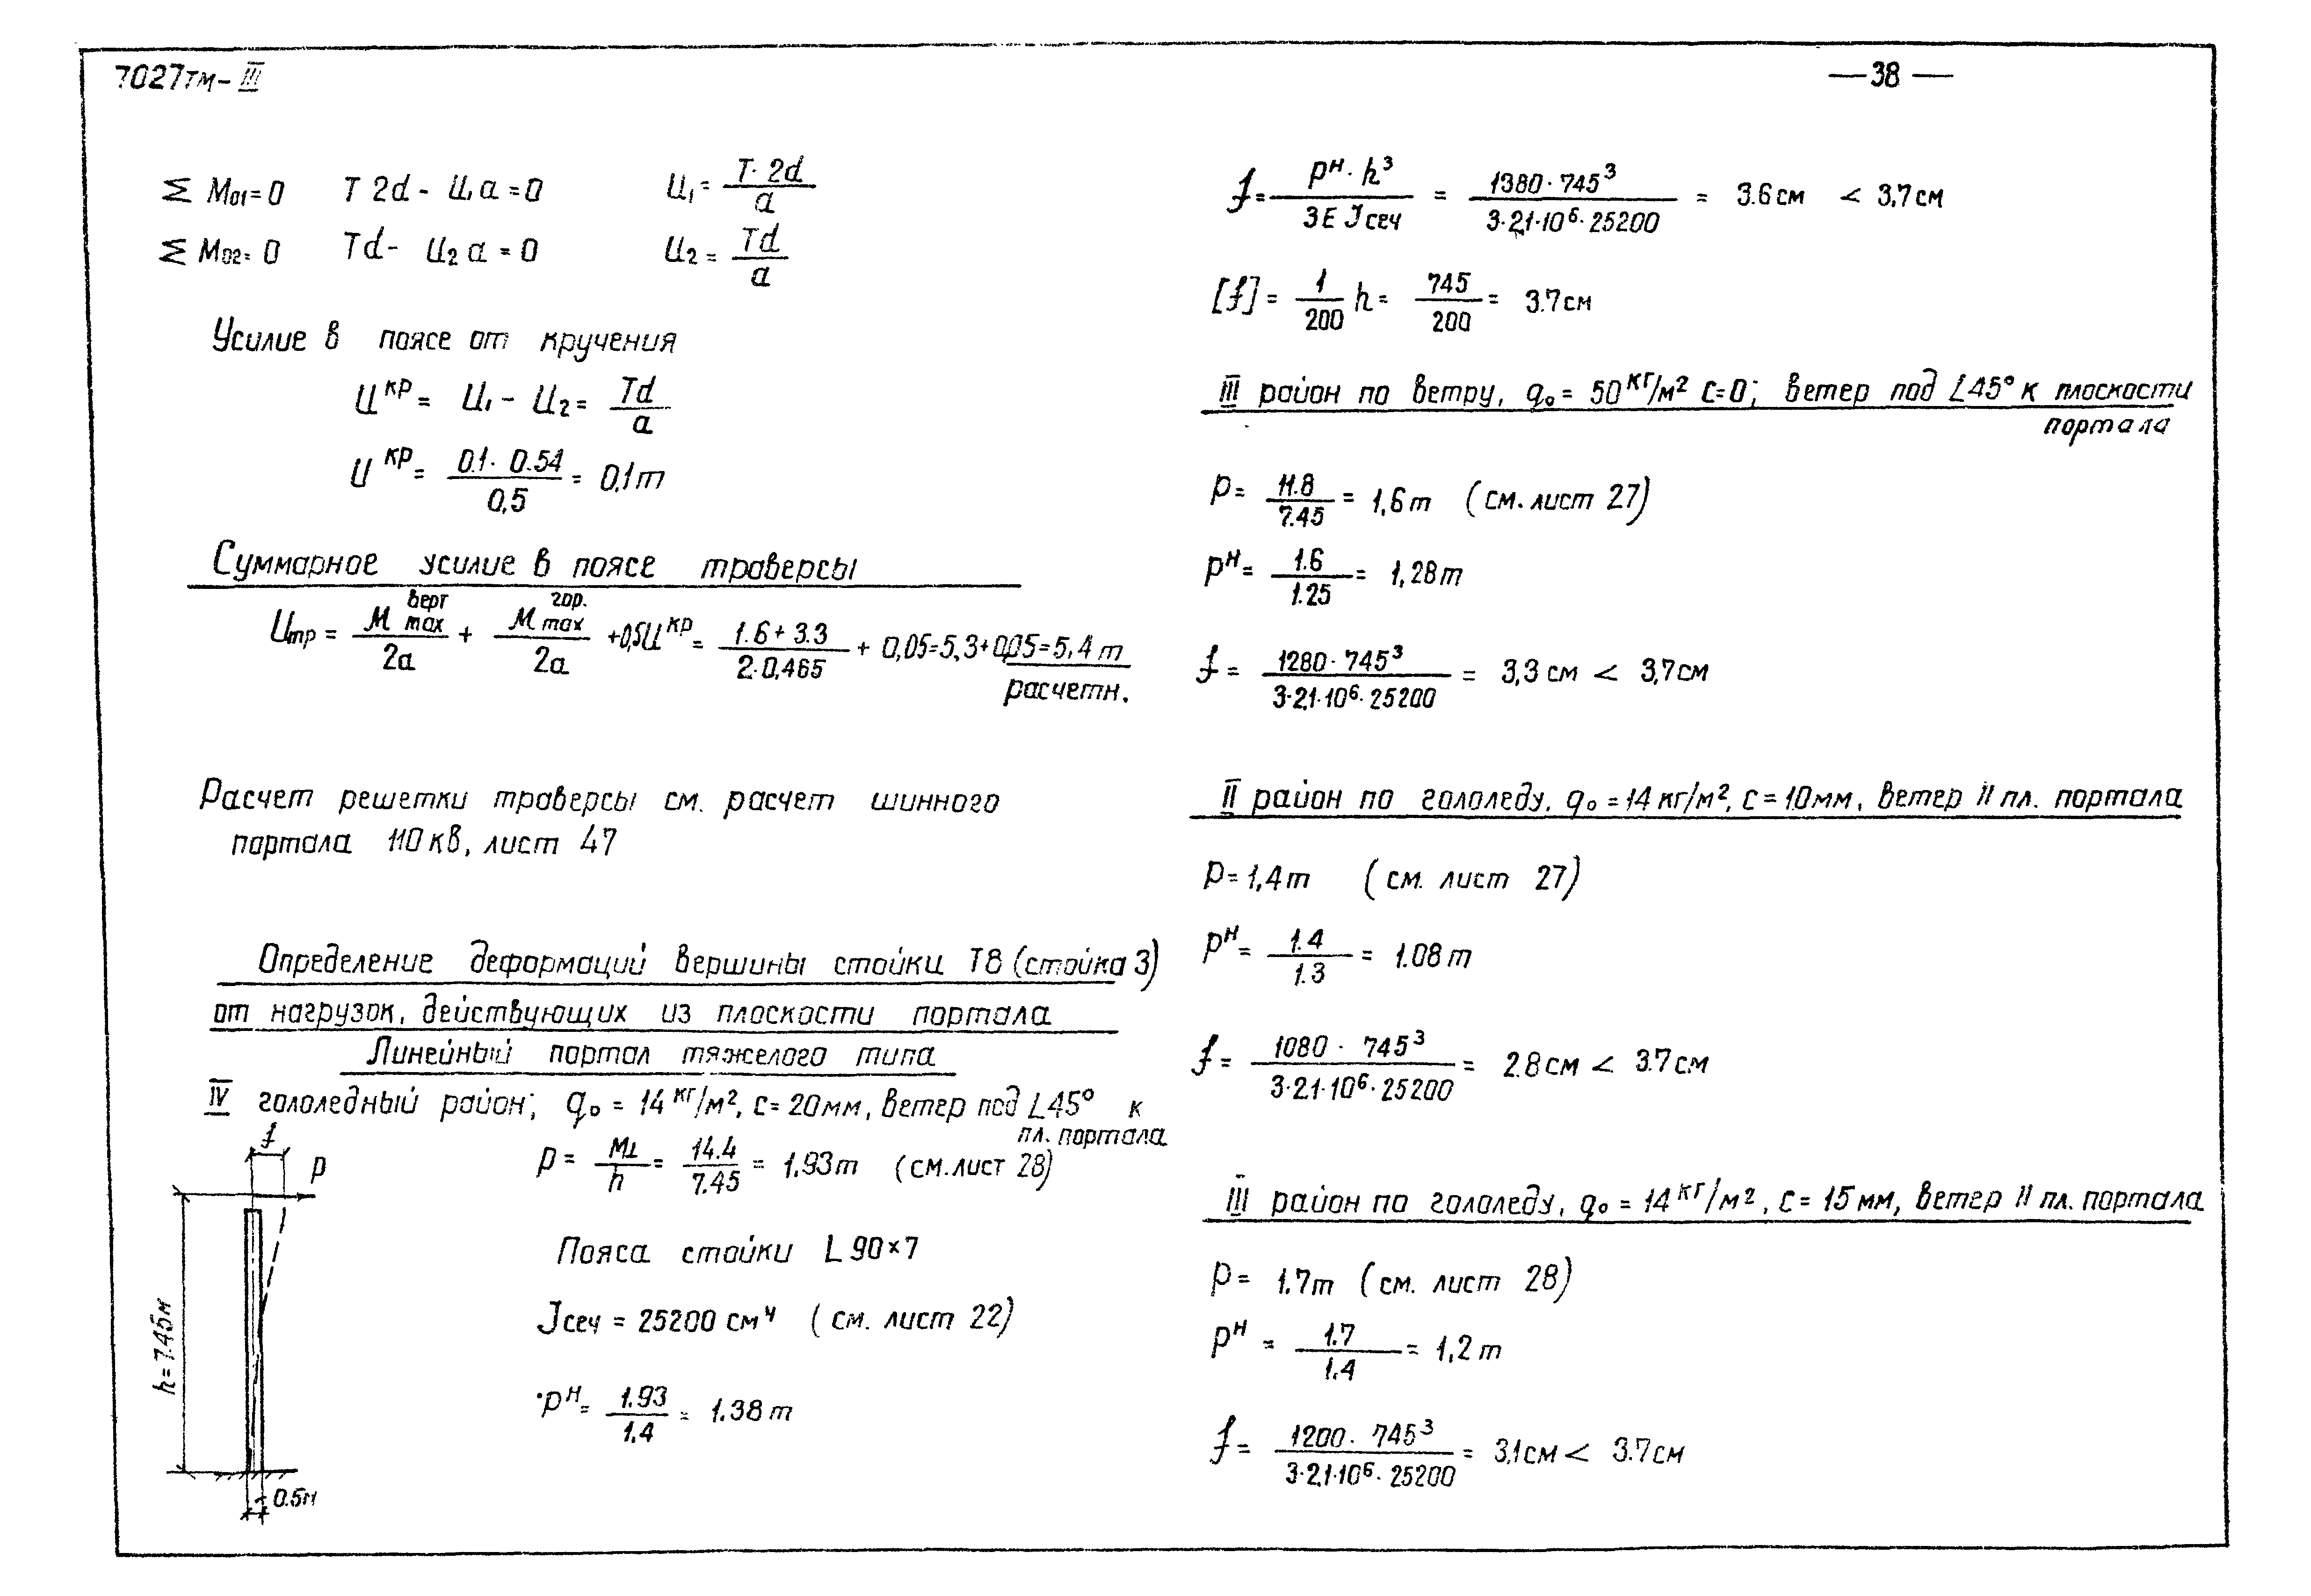 7027тм-III
—38—
Σ M01=0 T 2d - U1 a = 0 U1 = T·2d / a
Σ M02=0 Td - U2 a = 0 U2 = Td / a
Усилие в поясе от кручения
U^кр = U1 - U2 = Td / a
U^кр = 0.1·0.54 / 0,5 = 0,1т
Суммарное усилие в поясе траверсы
Uтр = M max^верт / 2a + M max^гор. / 2a + 0,5U^кр = 1.6+3.3 / 2·0,465 + 0,05=5,3+0,05=5,4т
расчетн.
Расчет решетки траверсы см. расчет шинного
портала 110 кв, лист 47
Определение деформаций вершины стойки Т8 (стойка 3)
от нагрузок, действующих из плоскости портала
Линейный портал тяжелого типа
IV гололедный район; q₀ = 14 кг/м², с=20мм, ветер под ∠45° к
пл. портала
P = M⊥ / h = 14.4 / 7.45 = 1.93т (см.лист 28)
Пояса стойки L 90×7
Jсеч = 25200 см⁴ (см. лист 22)
P^н = 1.93 / 1.4 = 1.38т
f
P
h=7.45м
0.5м
f = P^н·h³ / 3E Jсеч = 1380·745³ / 3·2,1·10⁶·25200 = 3.6см < 3,7см
[f] = 1 / 200 h = 745 / 200 = 3.7см
III район по ветру, q₀ = 50 кг/м² с=0; ветер под ∠45° к плоскости
портала
P = 11.8 / 7.45 = 1,6т (см.лист 27)
P^н = 1.6 / 1.25 = 1,28т
f = 1280·745³ / 3·2,1·10⁶·25200 = 3,3см < 3,7см
II район по гололеду, q₀ = 14 кг/м², с = 10мм, ветер II пл. портала
P = 1,4т (см. лист 27)
P^н = 1.4 / 1.3 = 1.08т
f = 1080·745³ / 3·2.1·10⁶·25200 = 2.8см < 3.7см
III район по гололеду, q₀ = 14 кг/м², с = 15мм, ветер II пл. портала
P = 1.7т (см. лист 28)
P^н = 1.7 / 1.4 = 1,2т
f = 1200·745³ / 3·2,1·10⁶·25200 = 3,1см < 3.7см